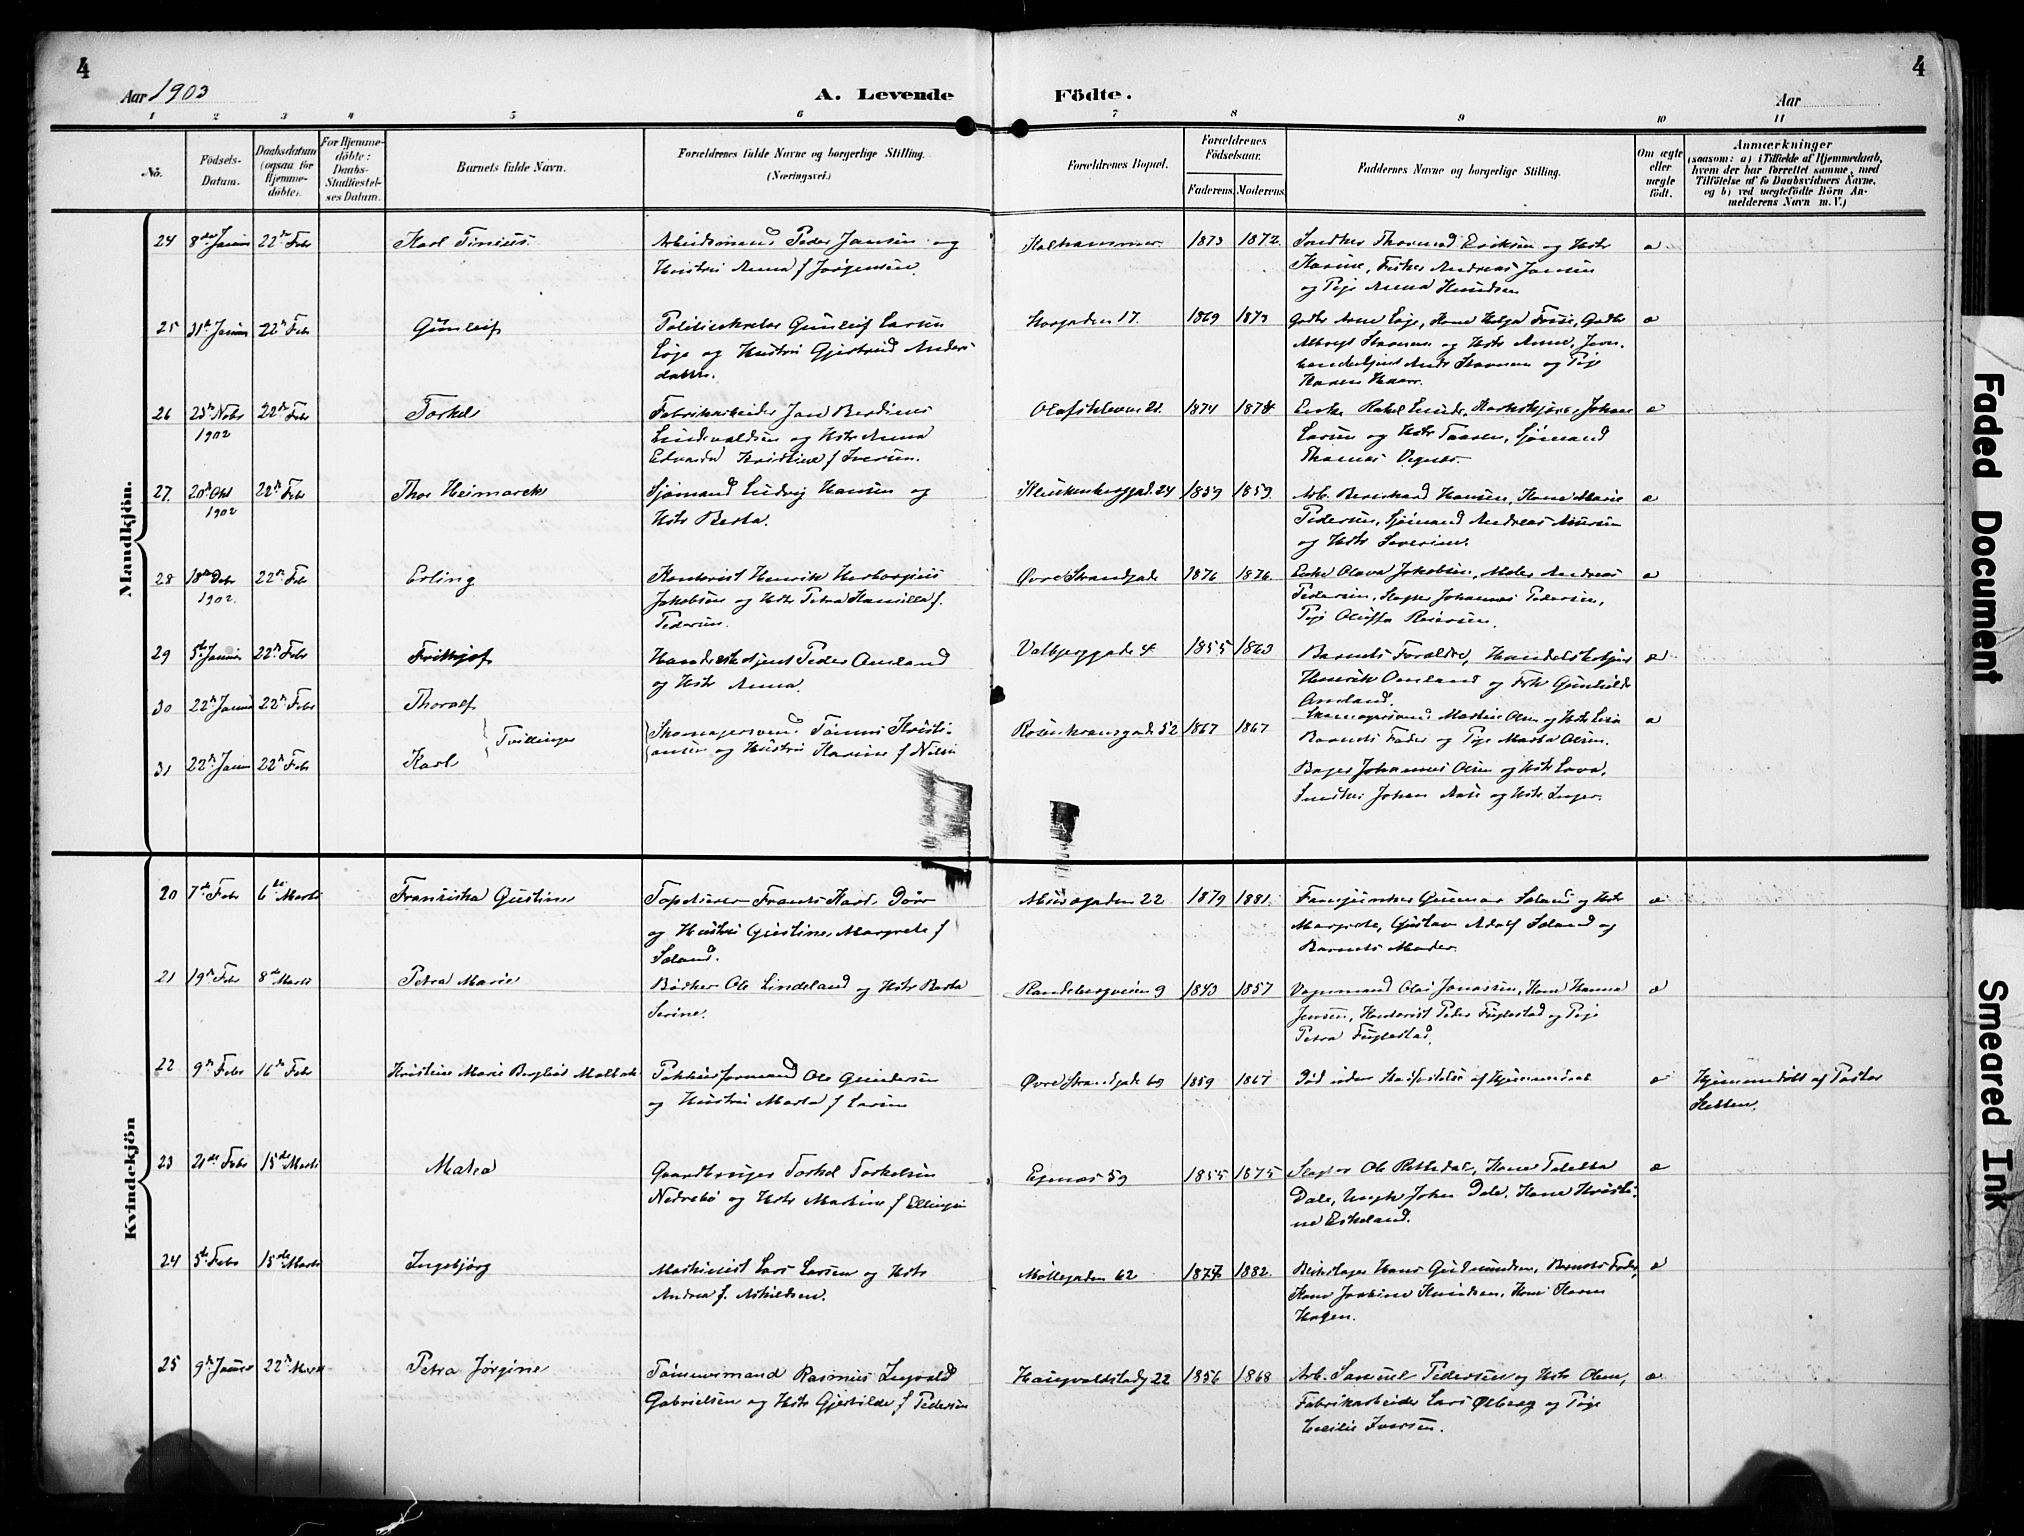 4
4
Aar 1903
A. Levende
Födte.
Aar
1 2 3 4 5 6 7 8 9 10 11
No.
Födsels-
Datum.
Daabsdatum
(ogsaa for
Hjemme-
döbte).
For Hjemme-
döbte:
Daabs-
Stadfæstel-
ses Datum.
Barnets fulde Navn.
Forældrenes fulde Navne og borgerlige Stilling.
(Næringsvei.)
Forældrenes Bopæl.
Forældrenes
Födselsaar.
Faderens. Moderens.
Faddernes Navne og borgerlige Stilling.
Om ægte
eller
uægte
født.
Anmærkninger
(saasom: a) i Tilfælde af Hjemmedaab,
hvem der har forrettet samme, med
Tilföielse af to Daabsvidners Navne,
og b) ved uægtefödte Börn An-
melderens Navn m. V.)
Mandkjön.
24 8de Januar 22de Febr Karl Tinius Arbeidsmand Peder Jansen og
Hustru Anna f Jørgensen.
Kalhammer 1873 1872. Smedker Thomas Eriksen og Hstr
Karine, Fisker Andreas Jansen
og Pige Anna Knudsen
æ
25 31te Januar 22de Febr Gunleif Politisekretær Gunleif Larsen
Løge og Hustru Gjertrud Anders
datter.
17. 1869 1873
Karen Haarr.
æ
26 23de Nobr 22de Febr
1902
Torkel Fabrikarbeider Jan Berdines
Lindvaldsen og Hstr Anna
Edvarda Kristine f Iversen.
Olafskleven 21. 1874 1874 Enke Rakel Lunde, Johan
Larsen og Hstr Taaren, Sjømand
Thomas
æ
27. 20de Okt 22de Febr
1902
Thor Heimarck Sjømand Ludvig Hansen og
Hstr Berta.
Klinkenberggd. 24 1859 1859. Arb. Bernhard Hansen, Kone Marie
Pedersen, Sjømand Andreas
og Hstr Severine.
æ
28 18de Debr 22de Febr
1902.
Erling Kontorist Henrik
Jakobsen og Hstr Petra Kamilla f.
Pedersen.
Øvre Strandgade 1876 1876. Enke Olava Jakobsen, Maler Andreas
Pedersen, Slagter Johannes Pedersen,
Pige Oluffa Reiersen.
æ
29 5te Januar 22de Febr Frithjof Handelsbetjent Peder Omland
og Hstr Anna.
Valbjerggade 4 1855 1863 Barnets Forældre, Handelsbetjent
Henrik Omland og Frk Gunhilde
Omland.
æ
30 22de Januar 22de Febr Thoralf
Tvillinger
Skomagersvend Tønnes Kristi-
ansen og Hustru Karine f Nilsen
Rosenkransgade 52 1867 1867 Skomagersvend Martin Olsen og Hstr Lisa
Barnets Fader og Pige Marta Olsen.
æ
31 22de Januar 22de Febr Karl Bager Johannes Olsen og Hstr Lava,
Smedker Johan Aase og Hstr Inger.
Kvindekjön
20 7de Febr 6te Marts Franziska Gustine Tapetserer Frants Karl Dörr
og Hustru Gustine, Margrete f
Søland.
22 1879 1881. Fanejunker Gunnar Søland og Hstr
Margrete, Gustav Adolf Søland og
Barnets Moder.
æ
21 19de Febr 8de Marts Petra Marie Bødker Ole Lindeland og Hstr Berta
Serine.
Randebergveien 9 1843 1857 Vognmand Olai Jonassen, Kone Hanna
Jensen, Kontorist Peder Fuglestad og Pige
Petra Fuglestad.
æ
22 9de Febr 16de Febr Kristine Marie Bergliot Malbek Pakhusformand Ole Gundersen
og Hustru Marta f Larsen
Øvre Strandgade 60 1859 1867 Død uden Stadfæstelse af Hjemmedaab æ Hjemmedöbt af Pastor
Sletten.
23 21de Febr 15de Marts Matea Gaardbruger Torkel Torkelsen
Nedrebø og Hstr Martine f Ellingsen
Egenæs 59 1855 1875 Slagter Ole Rettedal, Kone Toletta
Dale, Ungk John Dale, Kone Kristi-
ne Eskeland.
æ
24 5te Febr 15de Marts Ingebjørg Maskinist Lars Larsen og Hstr
Andrea f. Askildsen.
Møllegaden 62 1877 1882. Blikslager Hans Gudmundsen, Barnets Fader,
Kone Josefine Knudsen, Kone Karen
Hagen.
æ
25 9de Januar 22de Marts Petra Jørgine Tømmermand Rasmus Ingvald
Gabrielsen og Hstr Gjertilde f Pedersen
Haugvaldstadg 22 1856 1868 Arb. Samuel Pedersen og Hstr Olene,
Fabrikarbeider Lars Ølberg og Pige
Cecilie Iversen.
æ
Faded Document
Smeared Ink